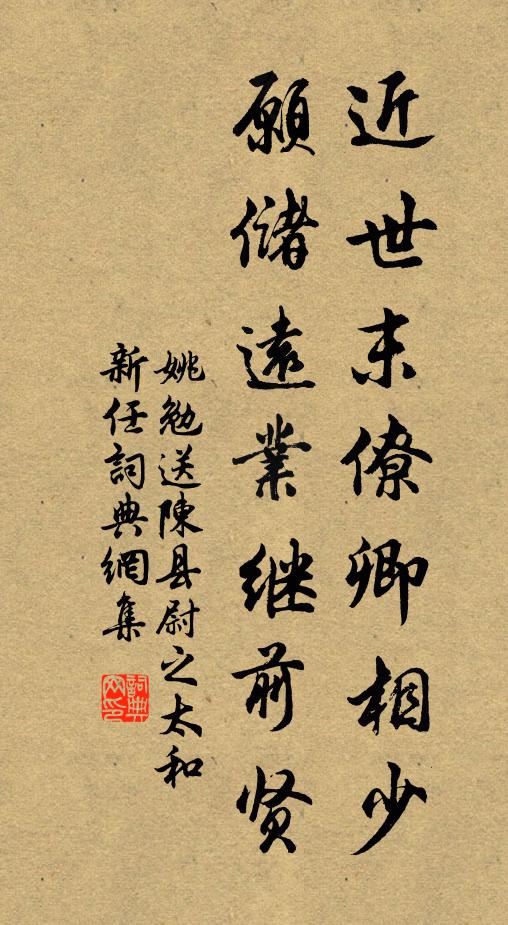 近世末僚卿相少
願儲遠業继前贤
姚勉送陳县尉之太和
新任詞典網集